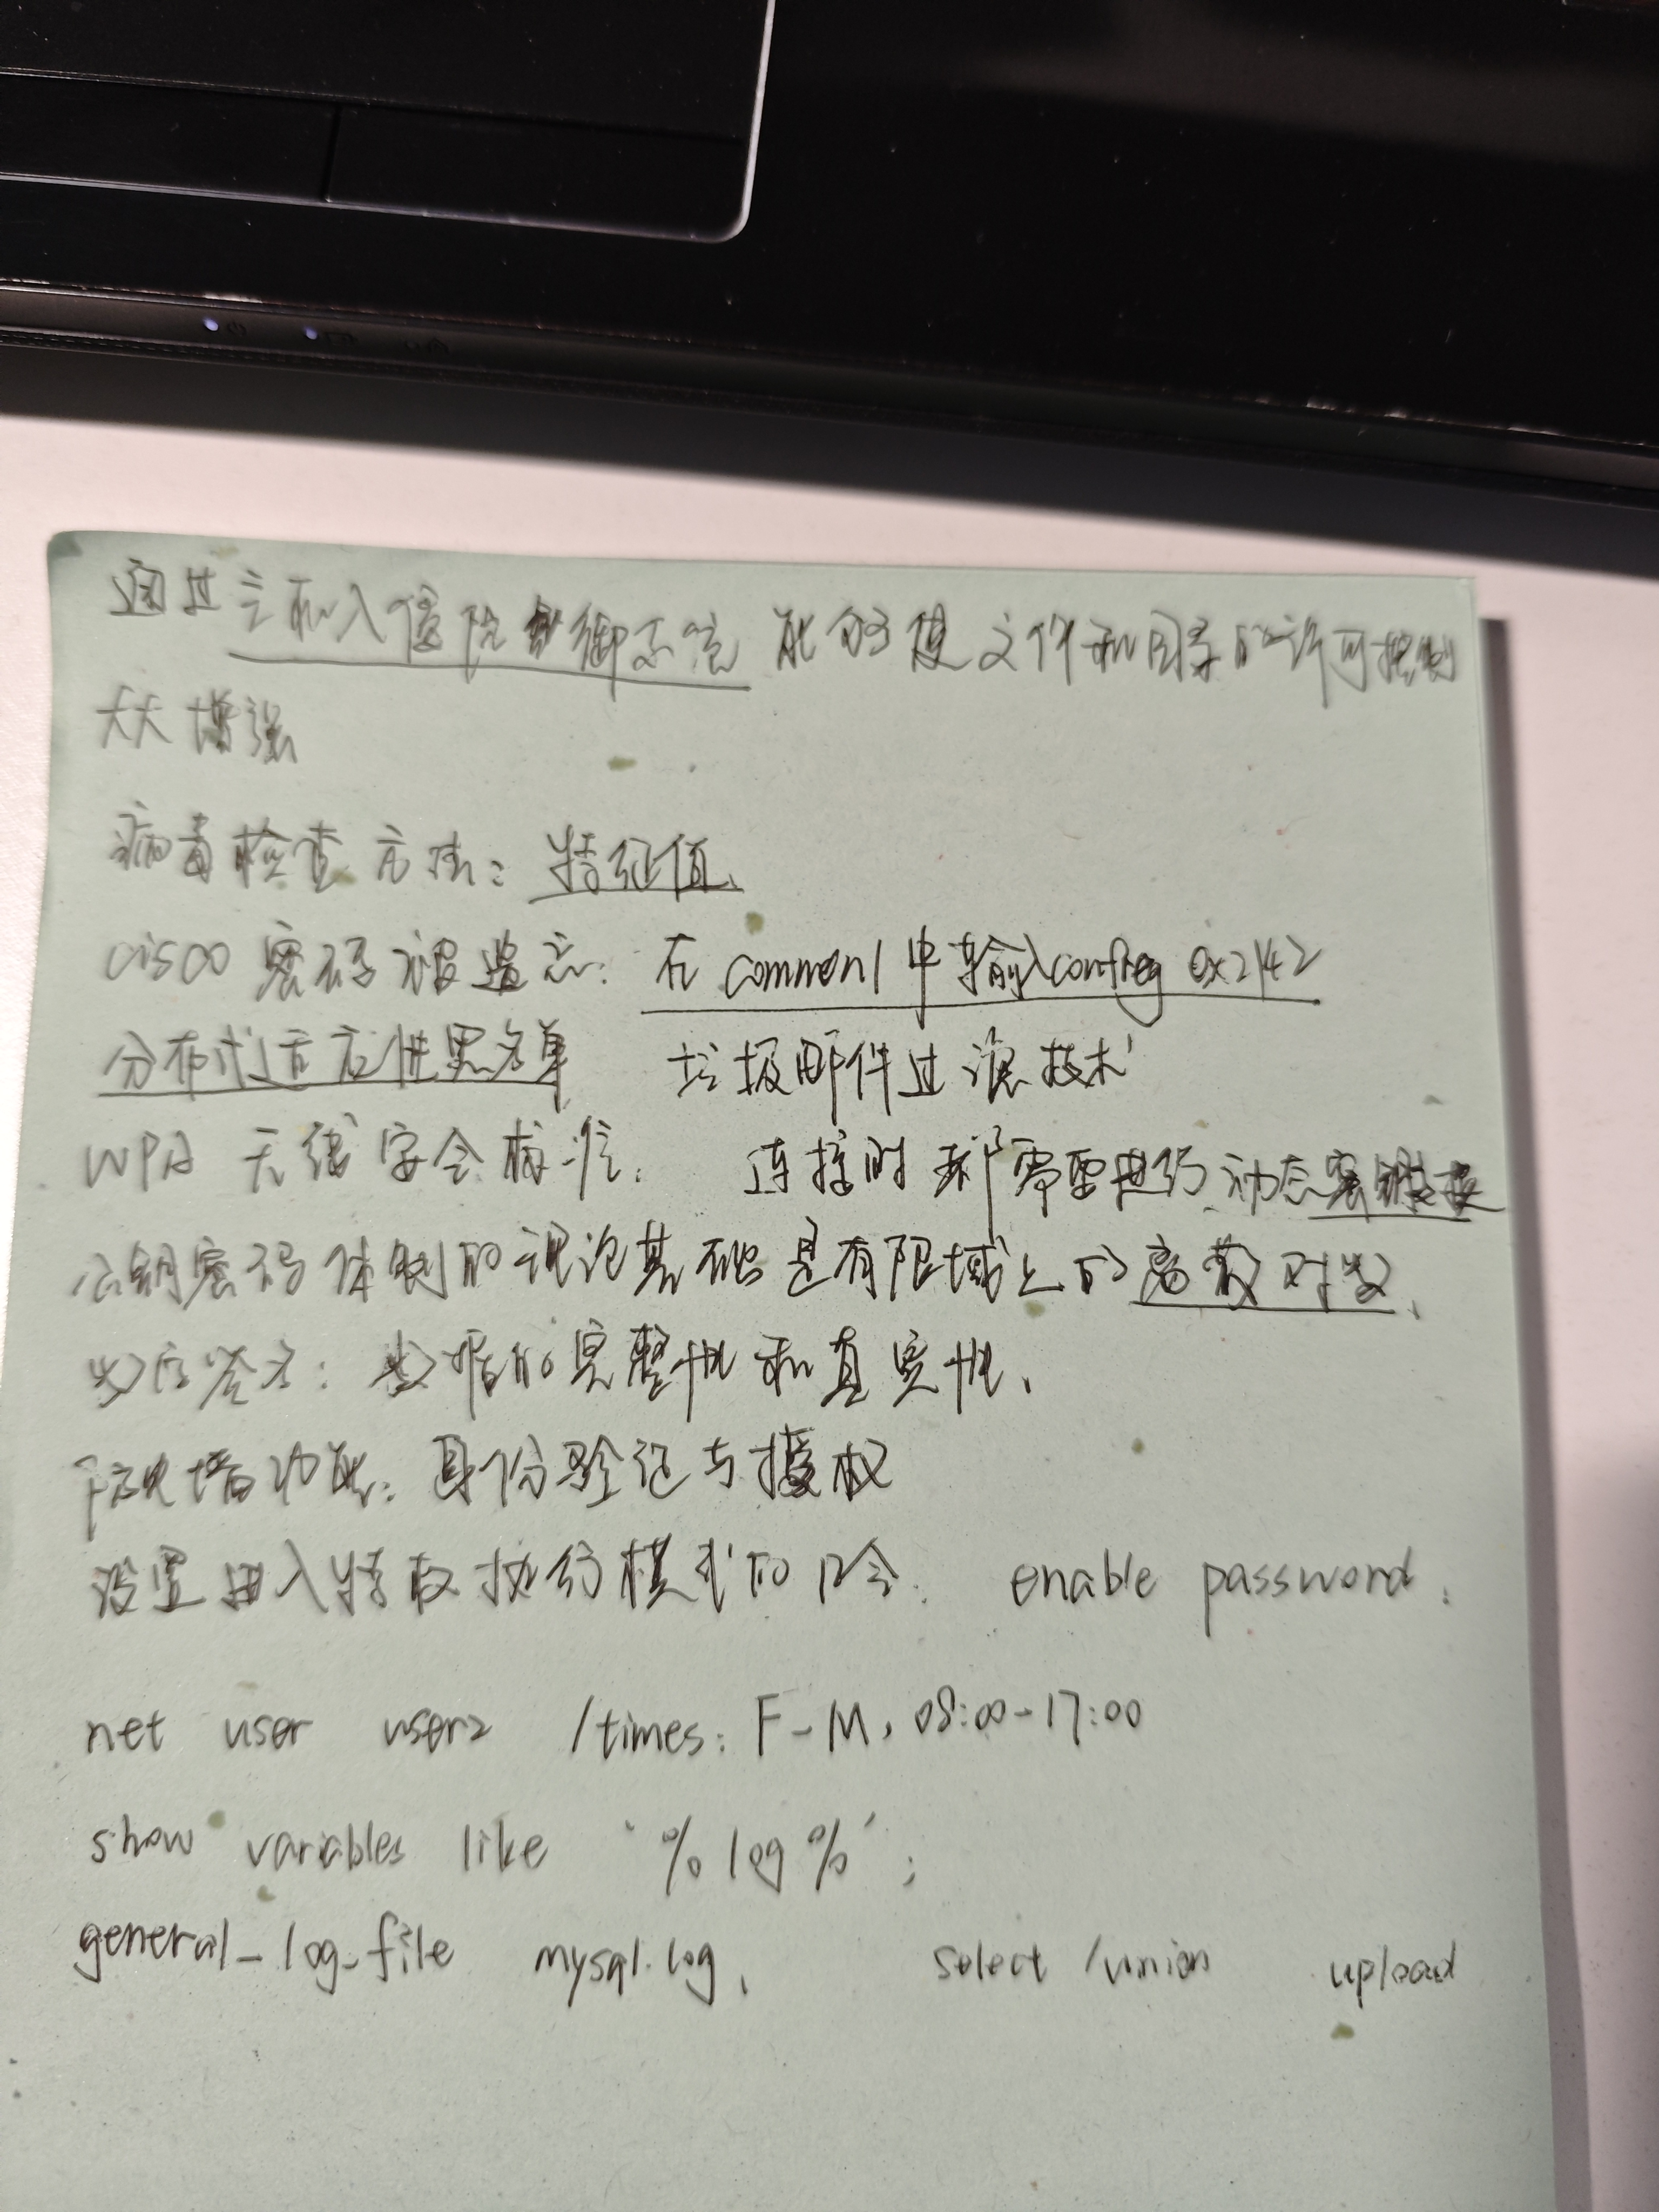 通过主机入侵防御系统 能够使文件和目录的许可控制
大大增强
病毒检查方法：特征值、
cisco 密码被遗忘：在 common1 中输入confreg 0x2142
分布式适应性黑名单 垃圾邮件过滤技术
WPA 无线安全标准： 连接时都需要进行动态密钥交换
公钥密码体制的理论基础是有限域上的离散对数、
数字签名：数据的完整性和真实性、
防火墙功能：身份验证与授权
设置进入特权执行模式的口令： enable password：
net user user2 /times: F-M, 08:00-17:00
show variables like '%log%';
general_log_file mysql.log, select /union upload